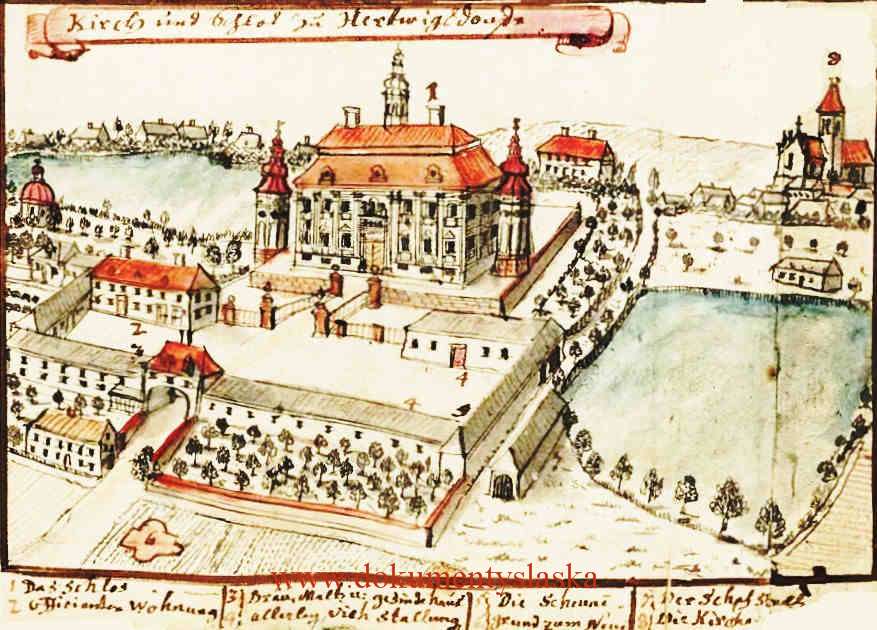 Kirch und Schlos zu Hertwigs
1
9
2
3
4
4
5
6
www.dokumentyslaska
1 Das Schlos
2 Officianten Wohnung
3) Brau, Maltz u: gesinde haus
4) allerley Vieh Stallung
Die Scheune
grund zum
7) Der Schaf Stall
8) Die Kirche